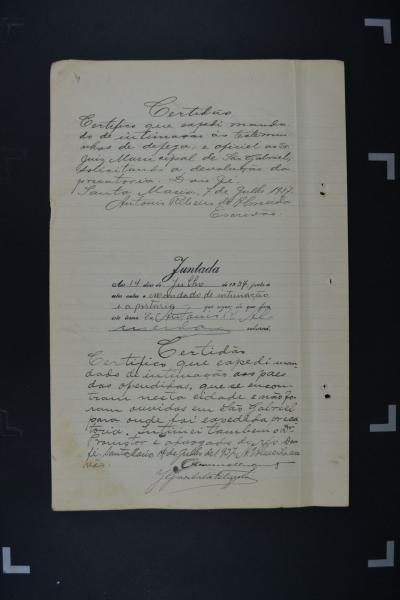 Certidão
Certifico que expedi manda-
do de intimação ás testemu-
nhas de defeza, e oficiei ao sr.
Juiz Municipal de São Gabriel,
solicitando a devolução da
precatoria. Dou fé.
Santa Maria, 7 de Julho 1937
Antonio Ribeiro de Almeida
Escrivão.
Juntada
Aos 14 dias de Julho de 1937, junto a
estes autos o mandado de intimação
e a portaria que segue; do que faço
este termo Eu Antonio
escrivão
Certidão
Certifico que expedi man-
dado de intimação aos paes
das ofendidas, que se encon-
tram nesta cidade e não fo-
ram ouvidas em São Gabriel
para onde foi expedida preca-
toria. Intimei tambem o Dr.
Promotor e advogado do réo. Dou
fé. Santa Maria 14 de Julho de 1937. O Escri-
vão